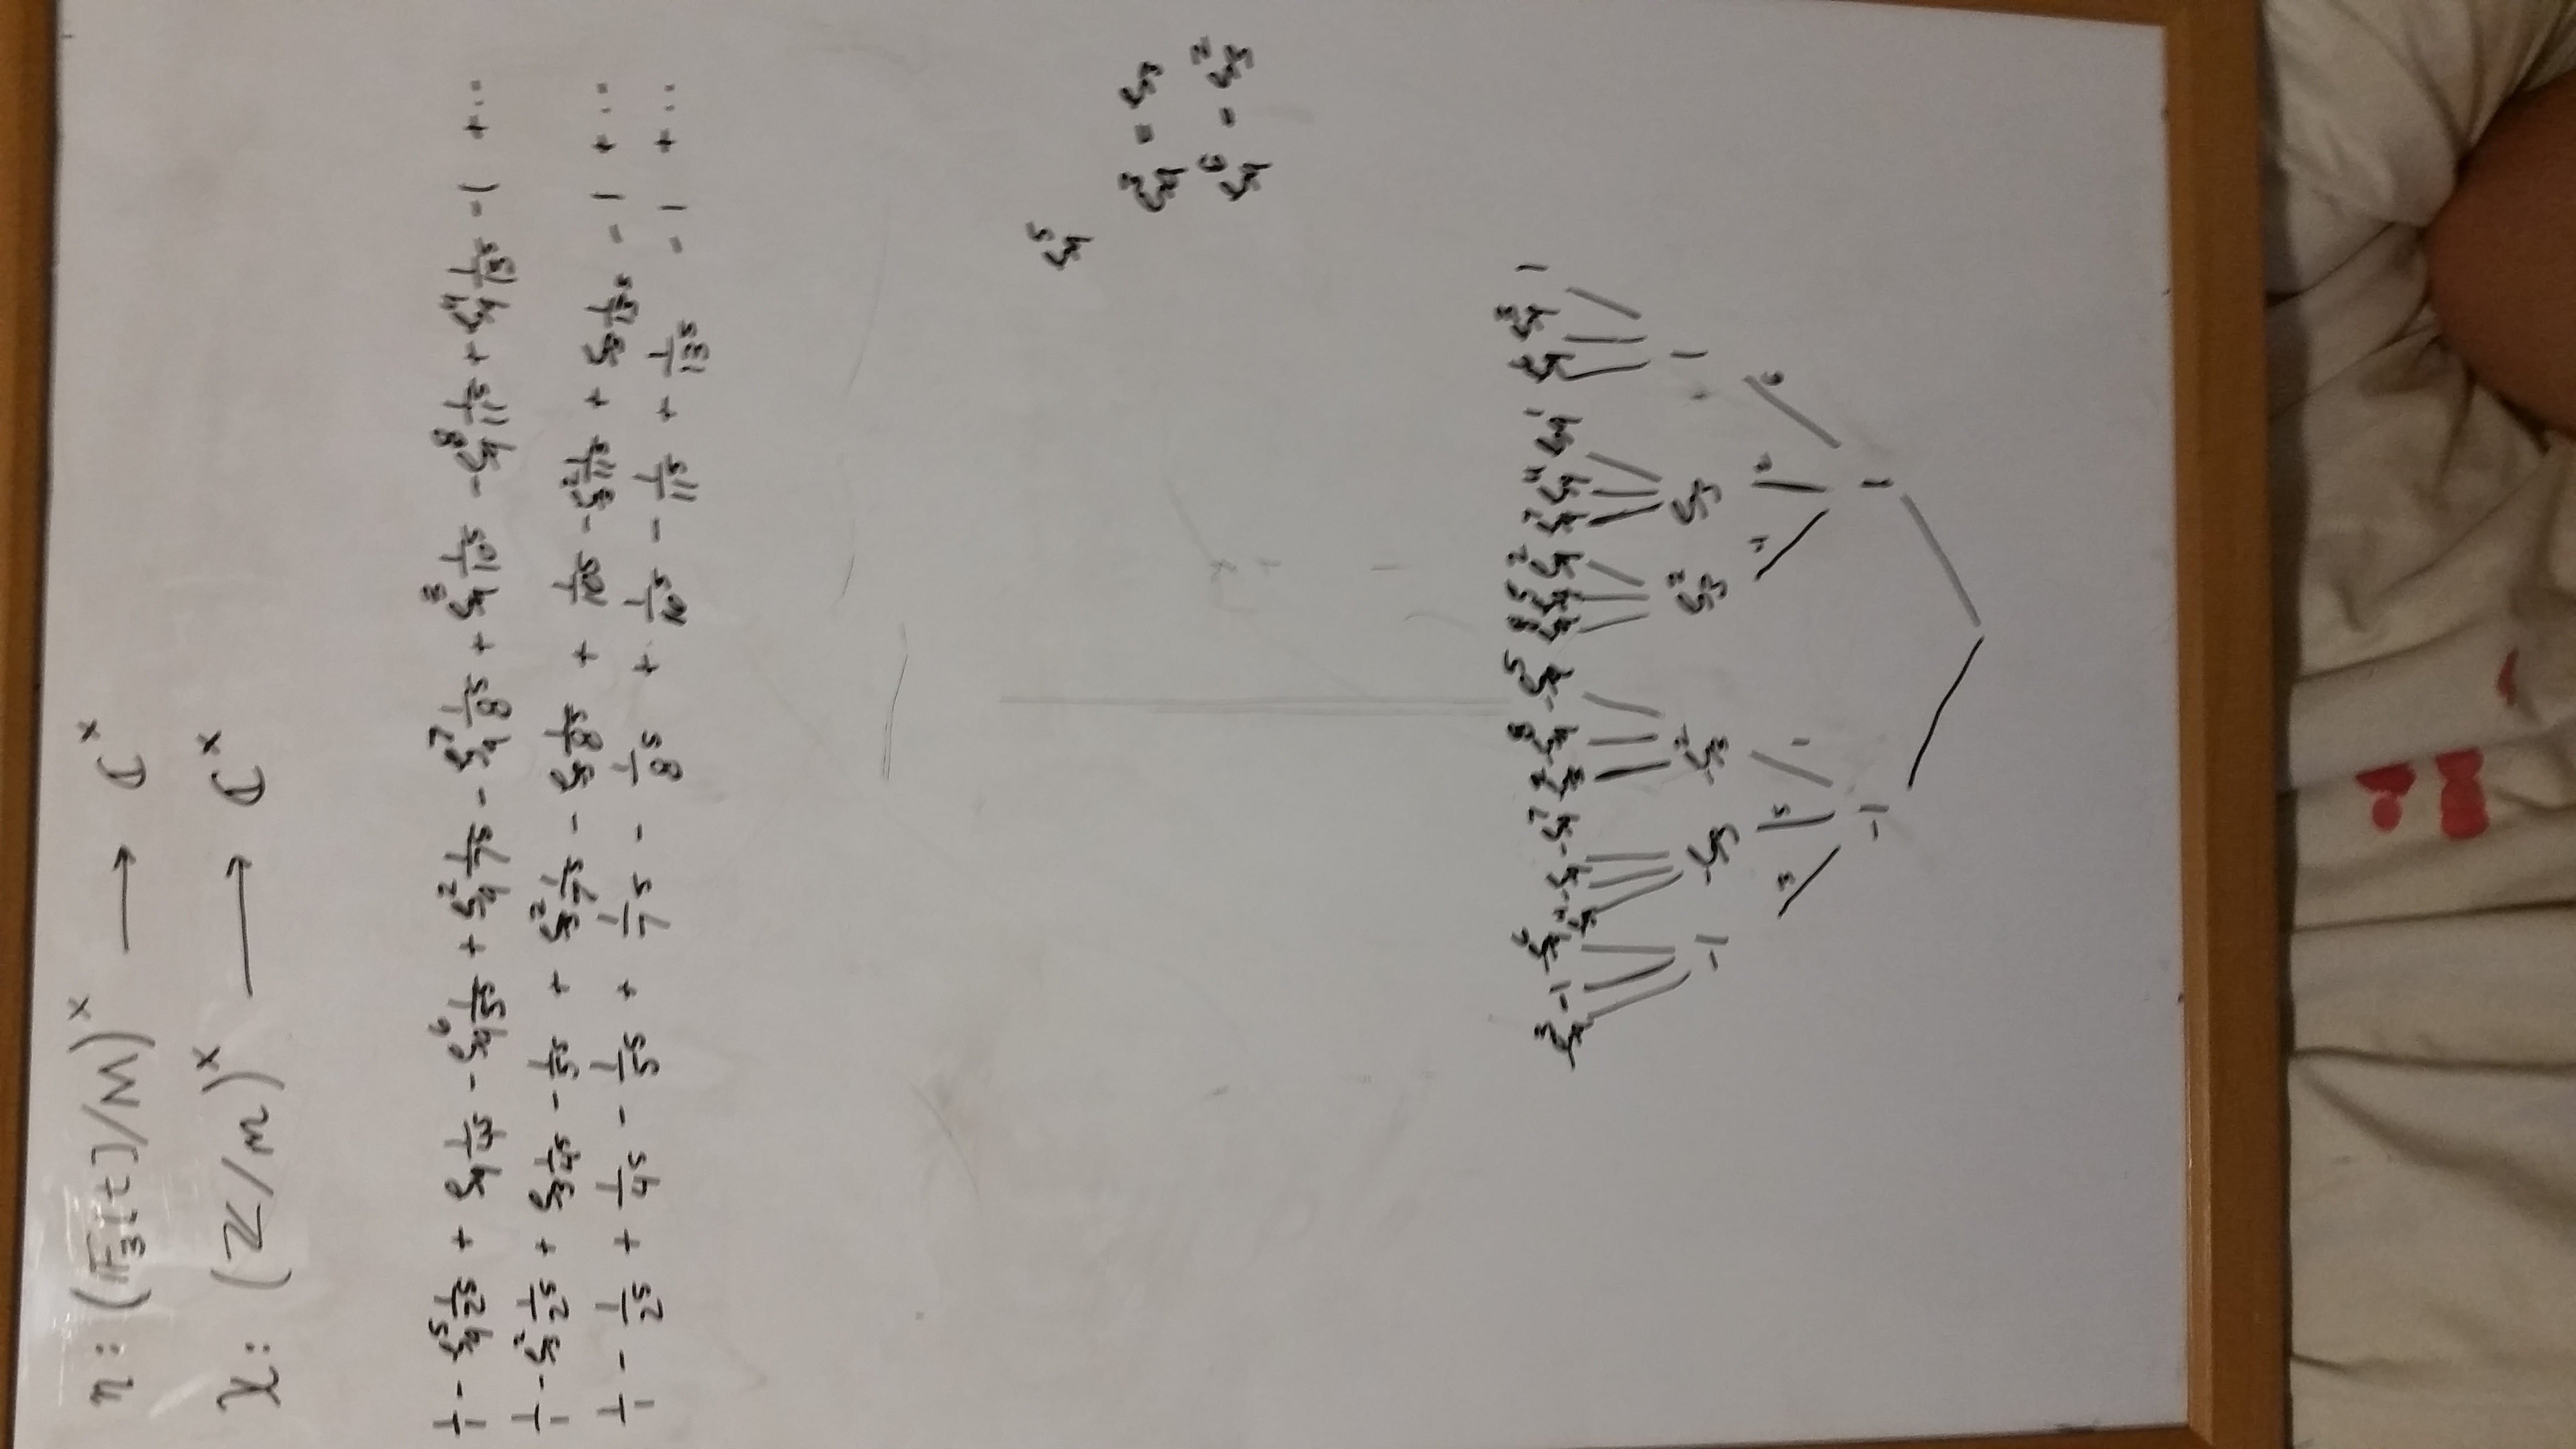 η: (𝔽₃[t]/M)^× ⟶ ℂ^×
χ: (ℤ/m)^× ⟶ ℂ^×
1/1 - ζ₉⁵ 1/2^s + ζ₉ 1/4^s - ζ₉⁶ 1/5^s + ζ₉² 1/7^s - ζ₉⁷ 1/8^s + ζ₉³ 1/10^s - ζ₉⁸ 1/11^s + ζ₉⁴ 1/13^s - 1 + ...
1/1 - ζ₃² 1/2^s + ζ₃ 1/4^s - 1/5^s + ζ₃² 1/7^s - ζ₃ 1/8^s + 1/10^s - ζ₃² 1/11^s + ζ₃ 1/13^s - 1 + ...
1/1 - 1/2^s + 1/4^s - 1/5^s + 1/7^s - 1/8^s + 1/10^s - 1/11^s + 1/13^s - 1 + ...
ζ₉⁵
ζ₉³ = ζ₃
ζ₉⁶ = ζ₃²
-ζ₉³ -1 -ζ₉⁶ -ζ₉⁴ -ζ₉ -ζ₉⁷ -ζ₉⁸ -ζ₉⁵ ζ₉⁸ ζ₉⁵ ζ₉² ζ₉⁷ ζ₉⁴ ζ₉¹ ζ₉⁶ ζ₉³ 1
-1 -ζ₃ -ζ₃² ζ₃² ζ₃ 1
3 5 1 4 2 6
-1 1